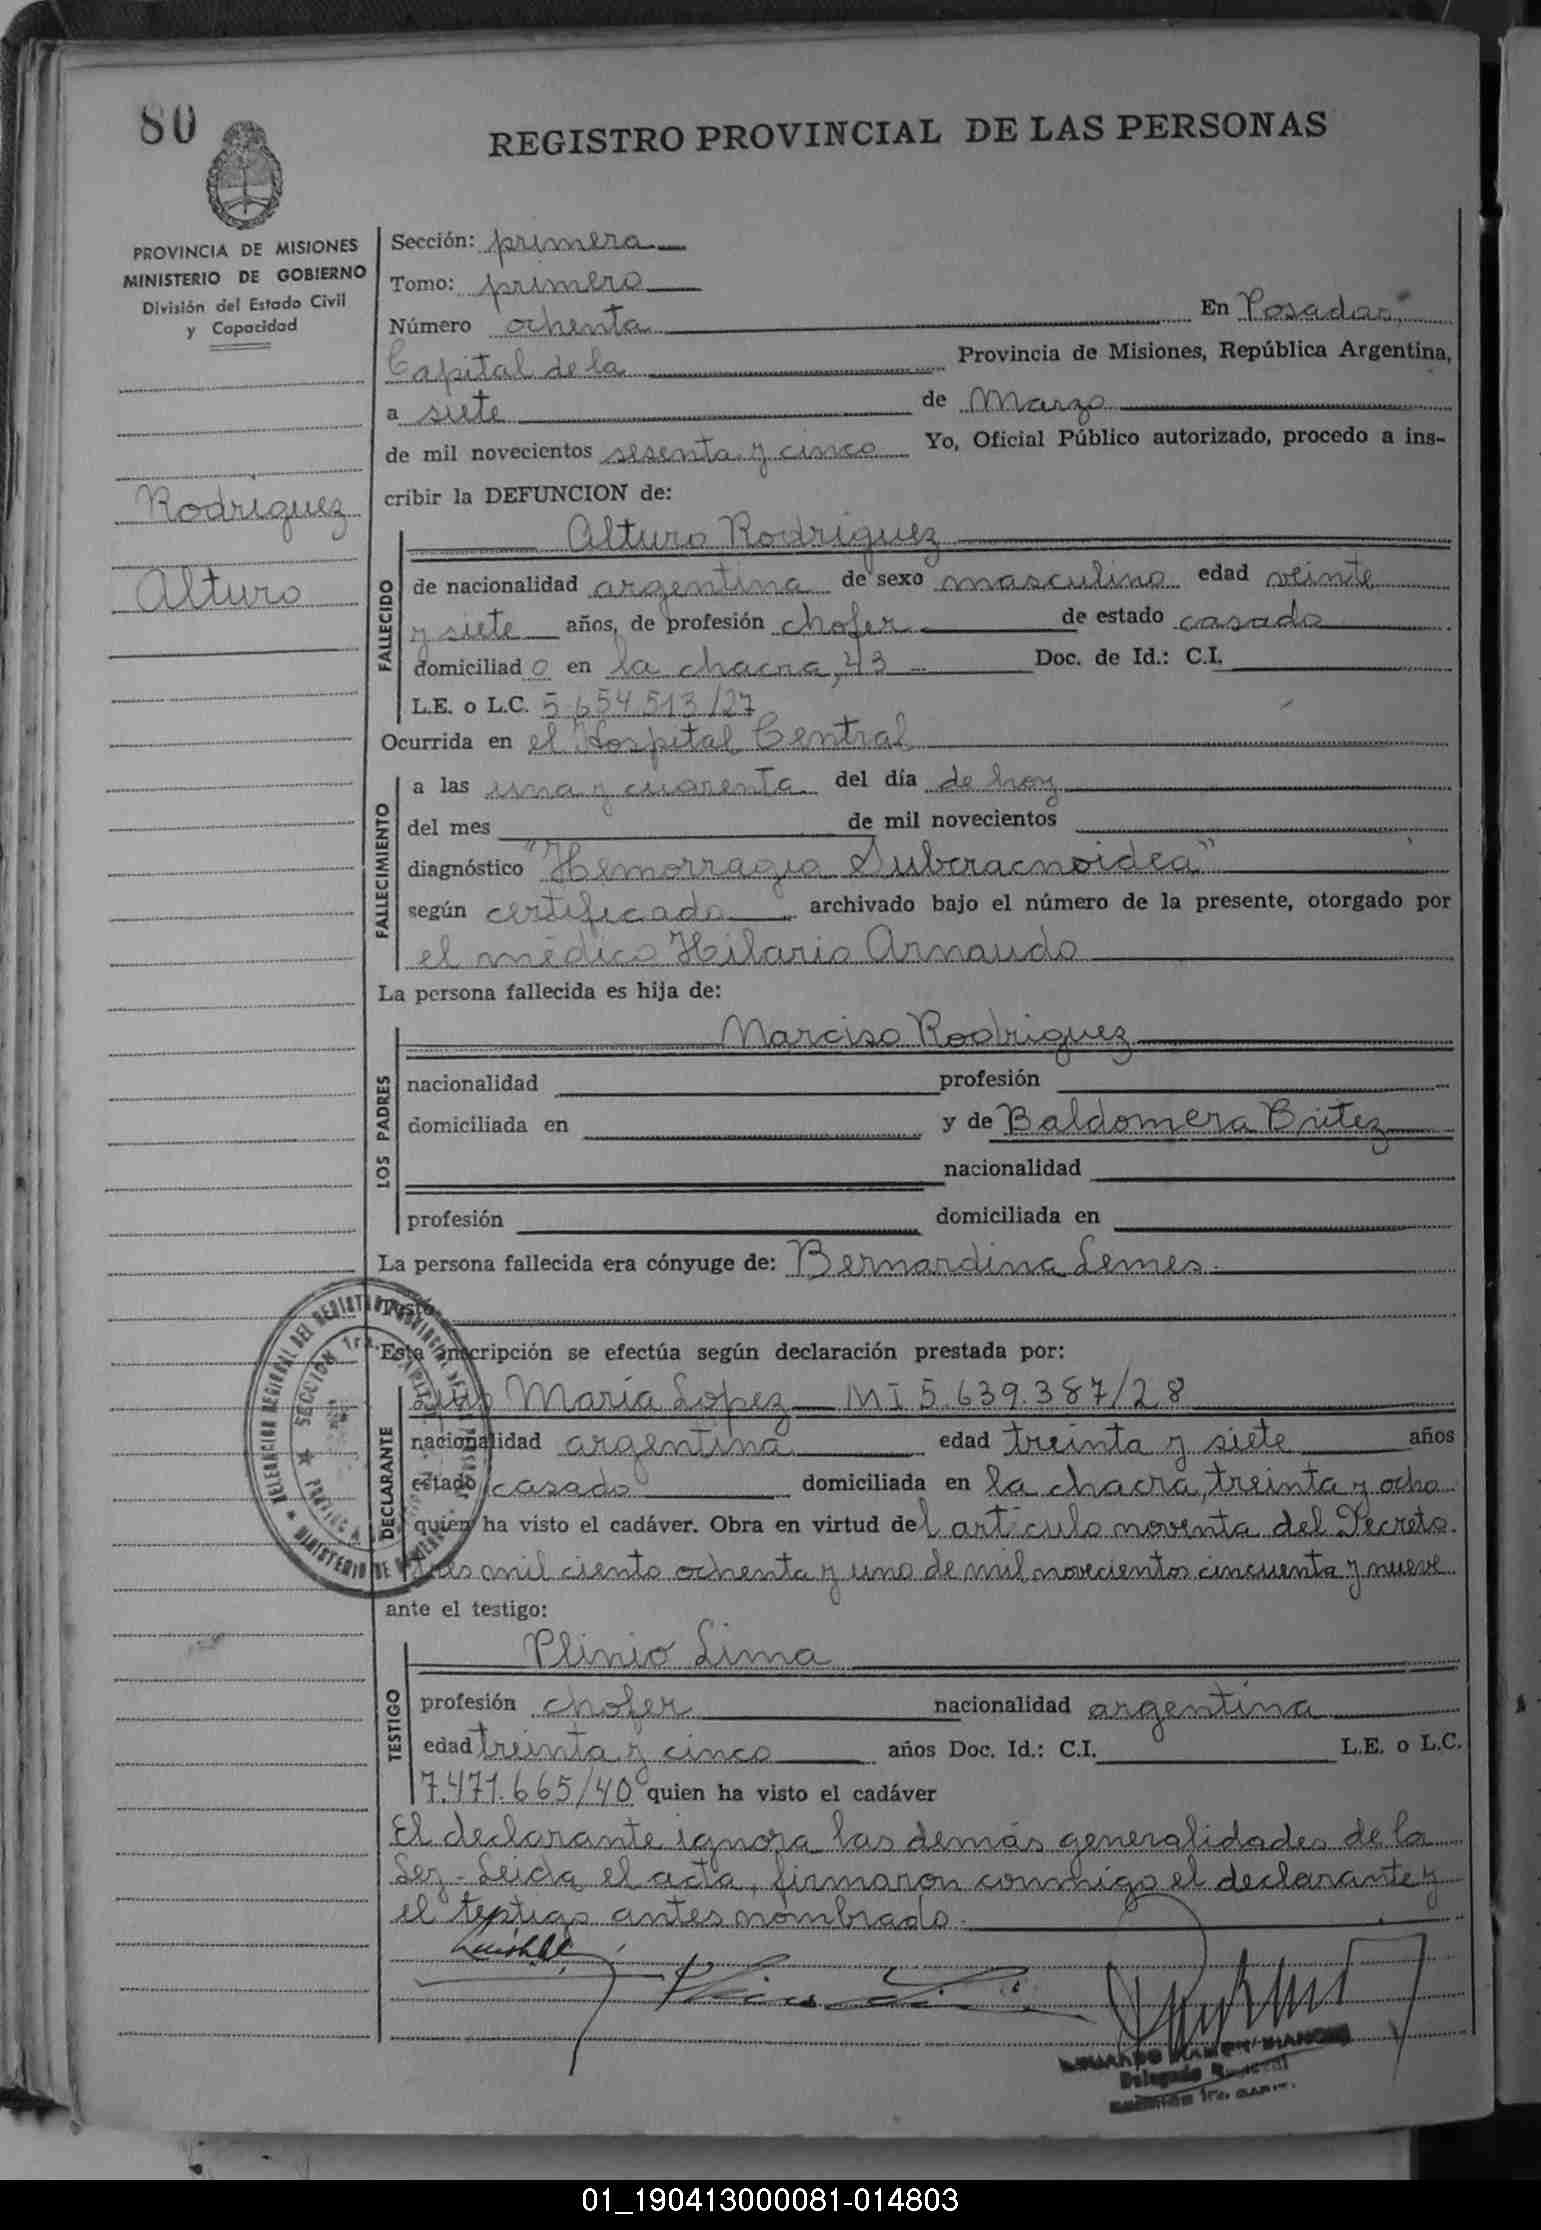 80
REGISTRO PROVINCIAL DE LAS PERSONAS
PROVINCIA DE MISIONES
MINISTERIO DE GOBIERNO
División del Estado Civil
y Capacidad
Rodriguez
Alturo
Sección: primera
Tomo: primero
Número ochenta En Posadas,
Capital de la Provincia de Misiones, República Argentina,
a siete de Marzo
de mil novecientos sesenta y cinco Yo, Oficial Público autorizado, procedo a ins-
cribir la DEFUNCION de:
FALLECIDO
Alturo Rodriguez
de nacionalidad argentina de sexo masculino edad veinte
y siete años, de profesión chofer de estado casado
domiciliad o en la chacra, 43 Doc. de Id.: C.I.
L.E. o L.C. 5.654.513/27
Ocurrida en el Hospital Central
FALLECIMIENTO
a las una y cuarenta del día de hoy
del mes de mil novecientos
diagnóstico "Hemorragia Subcracnoidea"
según certificado archivado bajo el número de la presente, otorgado por
el médico Hilario Arnaudo
La persona fallecida es hija de:
LOS PADRES
Narciso Rodriguez
nacionalidad profesión
domiciliada en y de Baldomera Britez
nacionalidad
profesión domiciliada en
La persona fallecida era cónyuge de: Bernardina Lemes.
Esta inscripción se efectúa según declaración prestada por:
DECLARANTE
Luis María Lopez MI 5.639.387/28
nacionalidad argentina edad treinta y siete años
estado casado domiciliada en la chacra, treinta y ocho
quien ha visto el cadáver. Obra en virtud del artículo noventa del Decreto
tres mil ciento ochenta y uno de mil novecientos cincuenta y nueve
ante el testigo:
TESTIGO
Plinio Lima
profesión chofer nacionalidad argentina
edad treinta y cinco años Doc. Id.: C.I. L.E. o L.C.
7.471.665/40 quien ha visto el cadáver
El declarante ignora las demás generalidades de la
Ley - Leida el acta, firmaron conmigo el declarante y
el testigo antes nombrado.
DELEGACION REGIONAL DEL REGISTRO PROVINCIAL DE LAS
MINISTERIO DE GOBIERNO
SECCION 1ra.
01_190413000081-014803